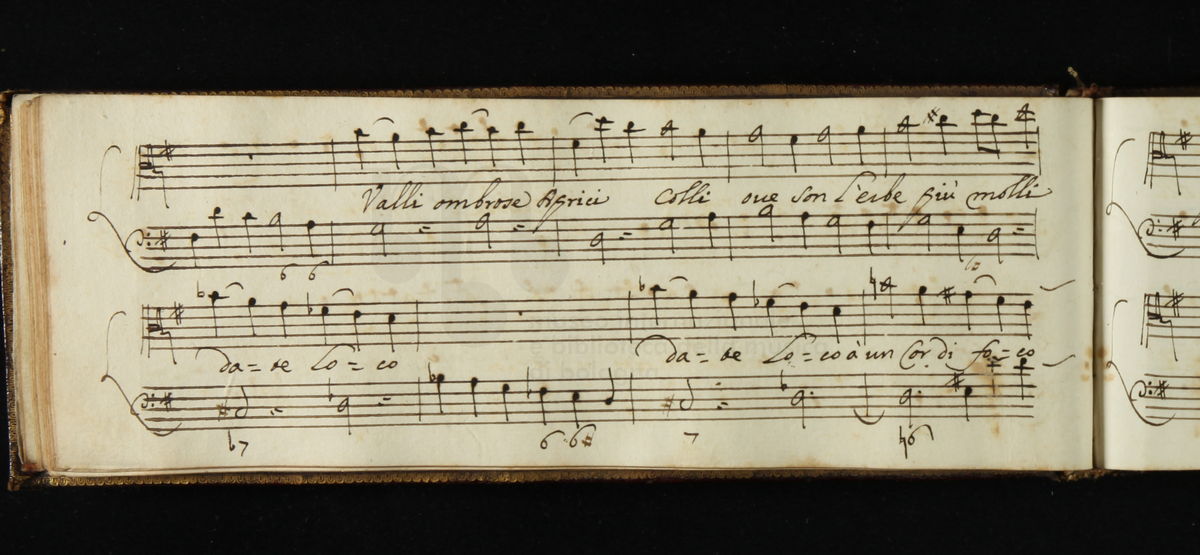 Valli ombrose Aprici Colli oue son l'erbe più molli
6 6
6
da=te lo=co da=te lo=co à un Cor di fo=co
♭7 6 6# 7 ♮6